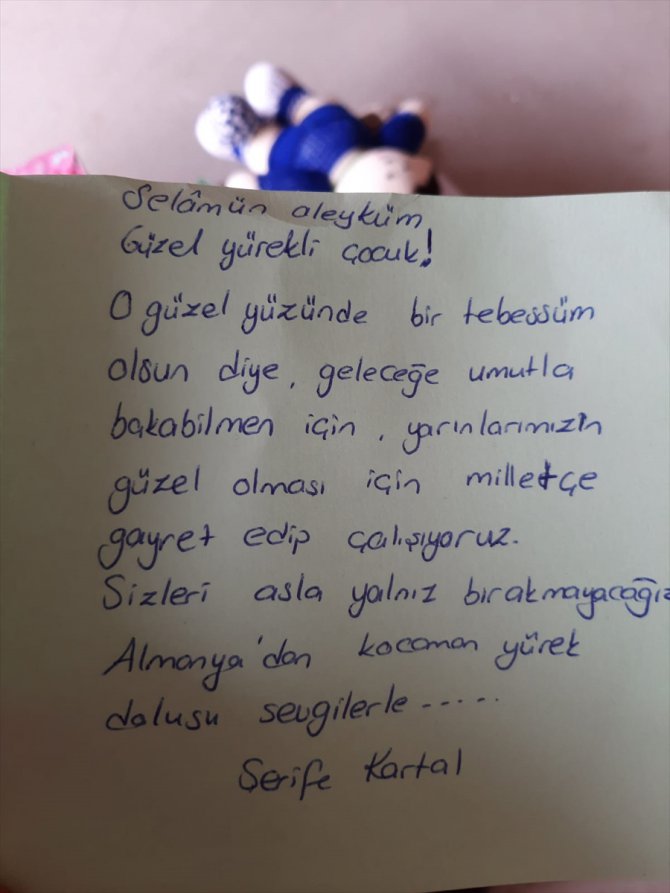 Selâmün aleyküm
Güzel yürekli çocuk!
O güzel yüzünde bir tebessüm
olsun diye, geleceğe umutla
bakabilmen için, yarınlarımızın
güzel olması için milletçe
gayret edip çalışıyoruz.
Sizleri asla yalnız bırakmayacağız
Almanya'dan kocaman yürek
dolusu sevgilerle .....
Şerife Kartal